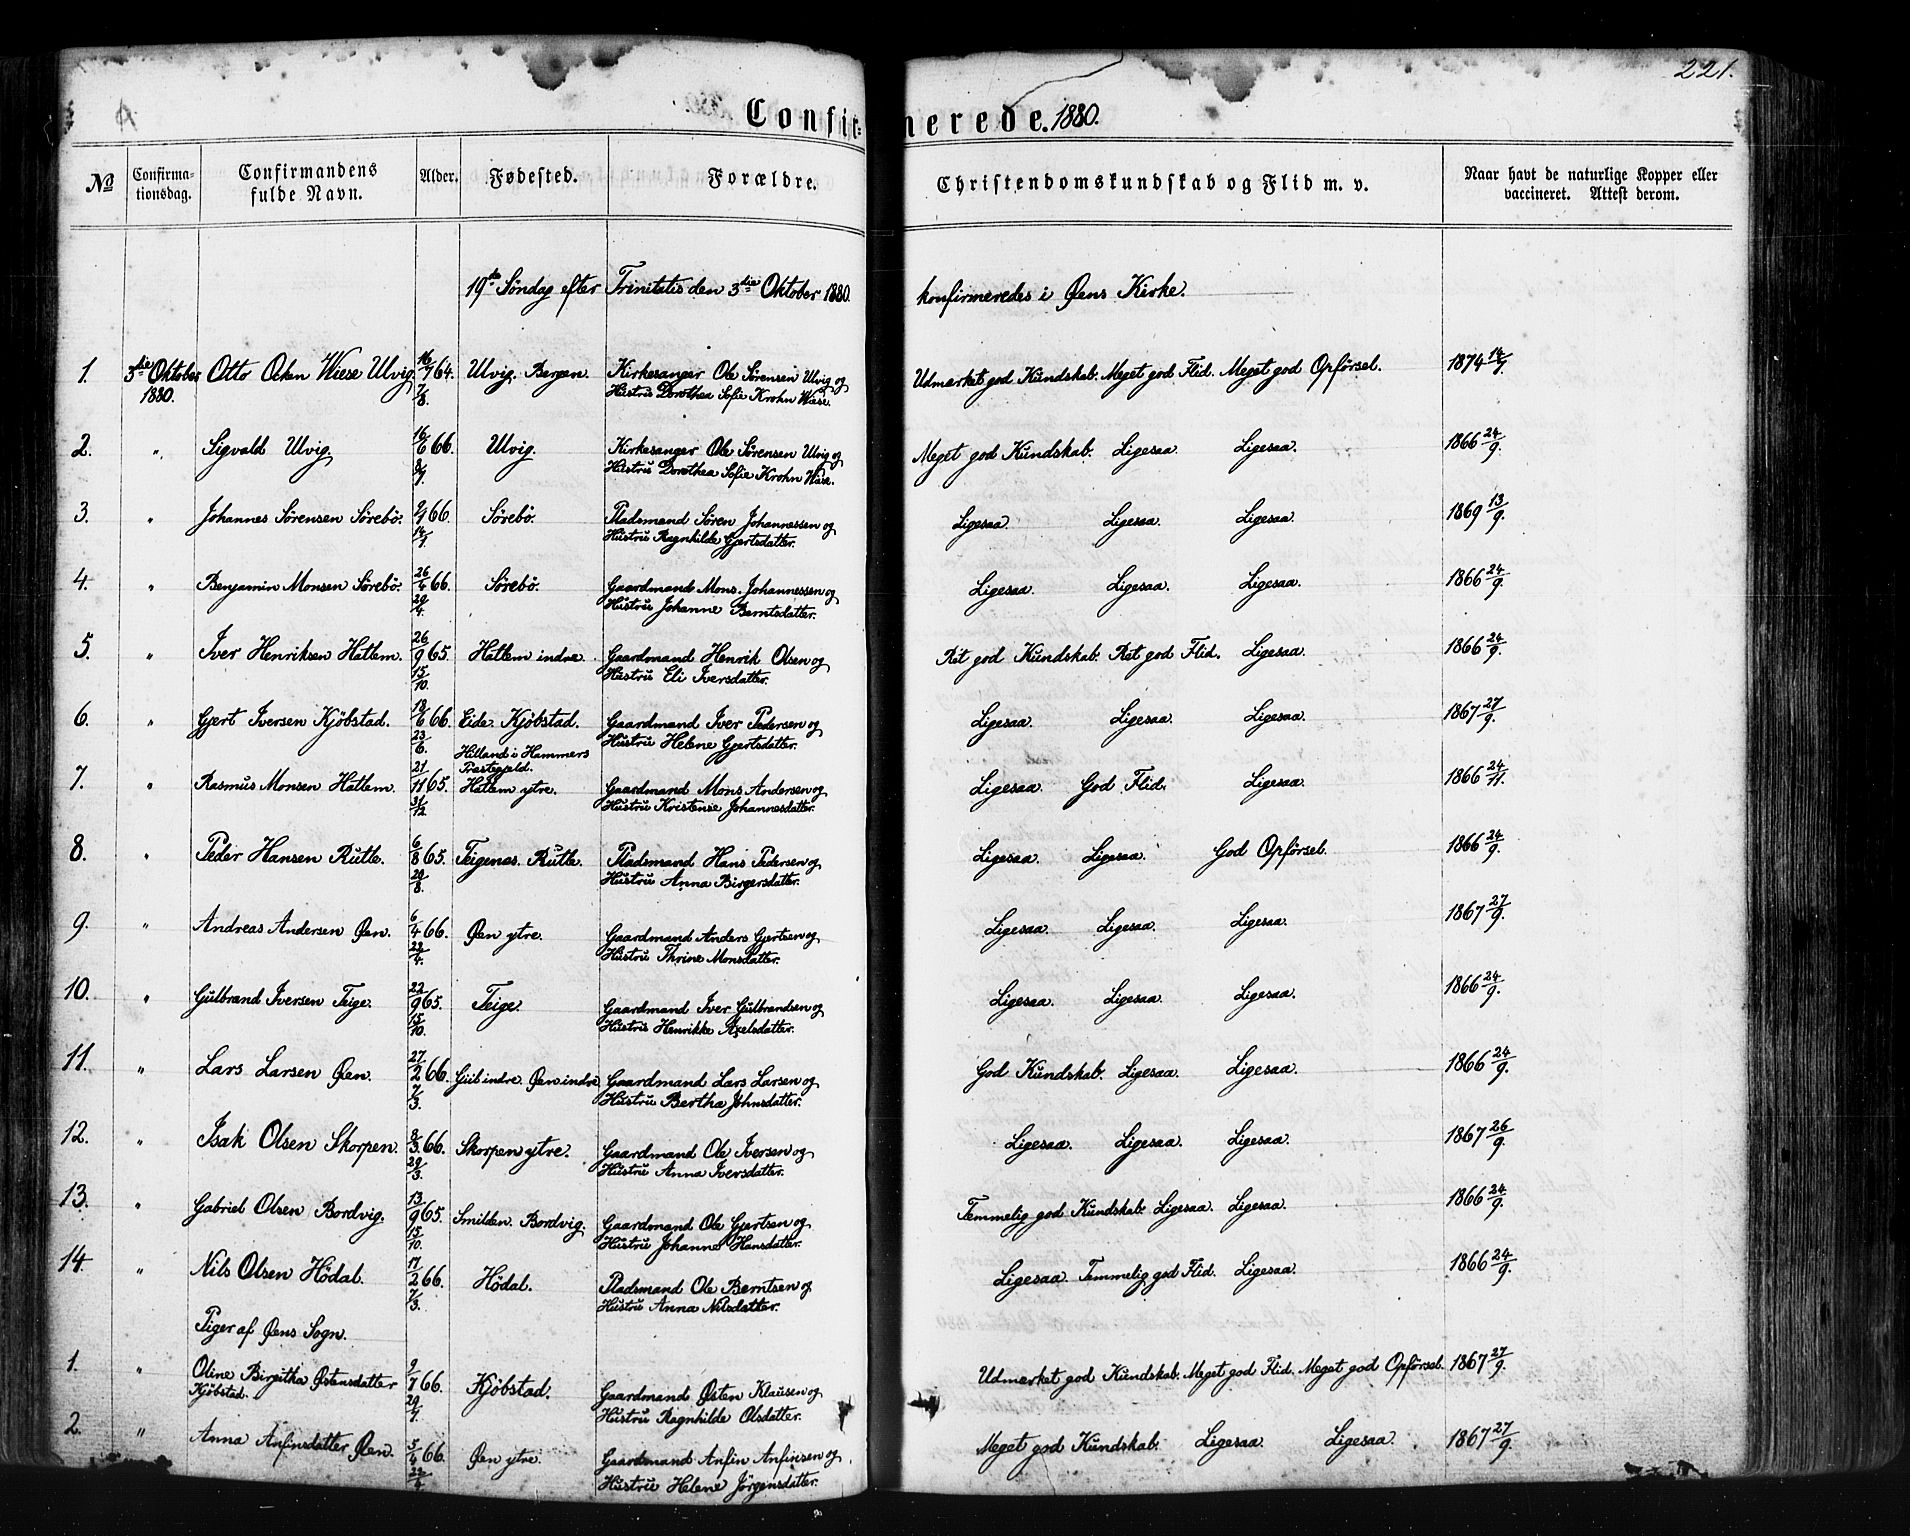 221.
Confirmerede. 1880.
No
Confirma-
tionsdag.
Confirmandens
fulde Navn.
Alder.
Fødested.
Forældre.
Christendomskundskab og Flid m. v.
Naar havt de naturlige Kopper eller
vaccineret. Attest derom.
19de Søndag efter Trinitatis den 3die Oktober 1880. konfirmeredes i Øens Kirke.
1. 3die Oktober Otto Olsen Wiese Ulvig 16/7 64. Ulvig. Bergen. Kirkesanger Ole Sørensen Ulvig og Udmærket god Kundskab. Meget god Flid. Meget god Opførsel. 1874 14/7.
1880. 7/8. Hustru Dorothea Sofie Krohn Wiese.
2. " Sigvald Ulvig. 16/6 66. Ulvig. Kirkesanger Ole Sørensen Ulvig og Meget god Kundskab. Ligesaa. Ligesaa. 1866 24/9.
8/7. Hustru Dorothea Sofie Krohn Wiese.
3. " Johannes Sørensen Sørebö. 2/1 66. Sørebö. Pladsmand Søren Johannessen og Ligesaa. Ligesaa. Ligesaa. 1869 13/9.
14/1. Hustru Ragnhilde Gjertsdatter.
4. " Benjamin Monsen Sørebö. 26/4 66. Sørebö. Gaardmand Mons Johannessen og Ligesaa. Ligesaa. Ligesaa. 1866 24/9.
29/4. Hustru Johanne Berntsdatter.
5. " Iver Henriksen Hatlem. 26/9 65. Hatlem indre. Gaardmand Henrik Olsen og Ret god Kundskab. Ret god Flid. Ligesaa. 1866 24/9.
15/10. Hustru Eli Iversdatter.
6. " Gjert Iversen Kjöbstad. 18/6 66. Eide. Kjöbstad. Gaardmand Iver Pedersen og Ligesaa. Ligesaa. Ligesaa. 1867 27/9.
23/6. Hustru Helene Gjertsdatter.
Hilland i Hammers
Præstegjeld.
7. " Rasmus Monsen Hatlem. 21/11 65. Hatlem ytre. Gaardmand Mons Andersen og Ligesaa. God Flid. Ligesaa. 1866 24/11.
31/12 Hustru Kristense Johannesdatter.
8. " Peder Hansen Rutle. 6/8 65. Teigenes. Rutle. Pladsmand Hans Pedersen og Ligesaa. Ligesaa. God Opførsel. 1866 24/9.
20/8. Hustru Anna Birgersdatter.
9. " Andreas Andersen Øen. 6/4 66. Øen ytre. Gaardmand Anders Gjertsen og Ligesaa. Ligesaa. Ligesaa. 1867 27/9.
22/4. Hustru Thrine Monsdatter.
10. " Gulbrand Iversen Teige. 22/9 65. Teige. Gaardmand Iver Gulbrandsen og Ligesaa. Ligesaa. Ligesaa. 1866 24/9.
15/10. Hustru Henrikke Axelsdatter.
11. " Lars Larsen Øen. 27/2 66. indre. Øen indre. Gaardmand Lars Larsen og God Kundskab. Ligesaa. Ligesaa. 1866 24/9.
7/3. Hustru Bertha Johnsdatter.
12. " Isak Olsen Skorpen. 8/3 66. Skorpen ytre. Gaardmand Ole Iversen og Ligesaa. Ligesaa. Ligesaa. 1867 26/9.
29/3. Hustru Anna Iversdatter.
13. " Gabriel Olsen Bordvig. 13/9 65. Smilden. Bordvig. Gaardmand Ole Gjertsen og Temmelig god Kundskab. Ligesaa. Ligesaa. 1866 24/9.
15/10. Hustru Johanne Hansdatter.
14. " Nils Olsen Hödal. 17/2 66. Hödal. Pladsmand Ole Berntsen og Ligesaa. Temmelig god Flid. Ligesaa. 1866 24/9.
7/3. Hustru Anna Nilsdatter.
Piger af Øens Sogn.
1. " Oline Birgitha Østensdatter 9/7 66. Kjöbstad. Gaardmand Østen Klausen og Udmærket god Kundskab. Meget god Flid. Meget god Opførsel. 1867 27/9.
Kjöbstad. 29/7. Hustru Ragnhilde Olsdatter.
2. " Anna Anfinsdatter Øen. 5/4 66. Øen ytre. Gaardmand Anfin Anfinsen og Meget god Kundskab. Ligesaa. Ligesaa. 1867 27/9.
22/4 Hustru Helene Jörgensdatter.